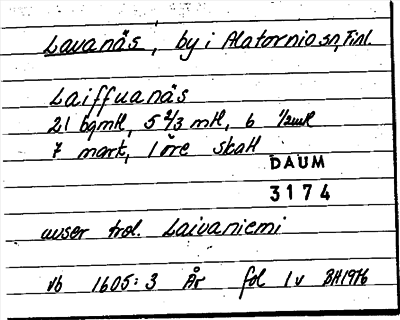 Lavanäs, by i Alatornio sn, Finl.
Laiffuanäs
21 bgmtl, 5 2/3 mtl, 6 1/2mtl
7 mark, 1 öre skatt
DAUM
3174
avser trol. Laivaniemi
vb 1605:3 År fol 1v BH1976